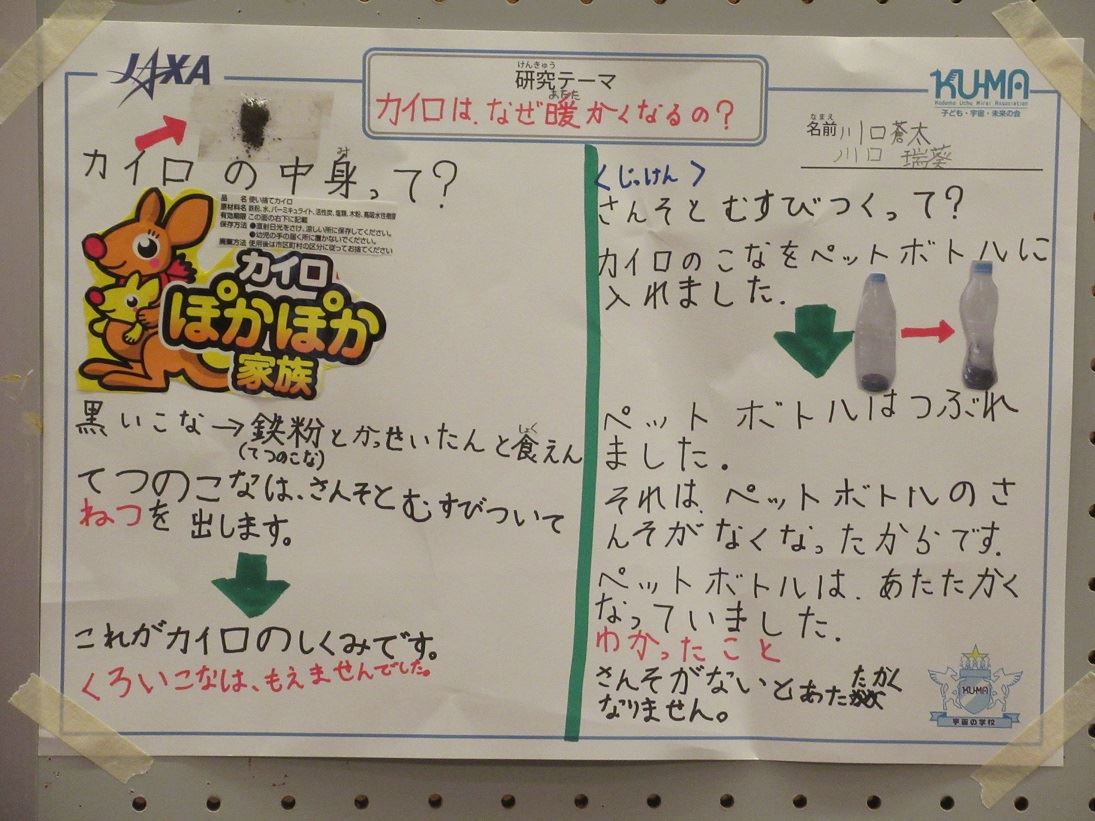 JAXA
けんきゅう
研究テーマ
あたた
カイロは、なぜ暖かくなるの？
KUMA
Kodomo Uchu Mirai Association
子ども・宇宙・未来の会
なまえ
名前 川口蒼太
川口 瑞葵
み
カイロの中身って？
品　名 使い捨てカイロ
原材料名 鉄粉、水、バーミキュライト、活性炭、塩類、木粉、高吸水性樹脂
有効期限 この面の右下に記載
保存方法 ●直射日光をさけ、涼しい所に保存してください。
●幼児の手の届く所に置かないでください。
廃棄方法 使用後は市区町村の区分に従ってお捨てください
カイロ
ぽかぽか
家族
しょく
黒いこな→鉄粉とかっせいたんと食えん
(てつのこな)
てつのこなは、さんそとむすびついて
ねつを出します。
これがカイロのしくみです。
くろいこなは、もえませんでした。
〈じっけん〉
さんそとむすびつくって？
カイロのこなをペットボトルに
入れました.
ペットボトルはつぶれ
ました.
それは、ペットボトルのさ
んそがなくなったからです.
ペットボトルは、あたたかく
なっていました.
わかったこと
さんそがないとあたたかく
なりません。
KU-MA
宇宙の学校